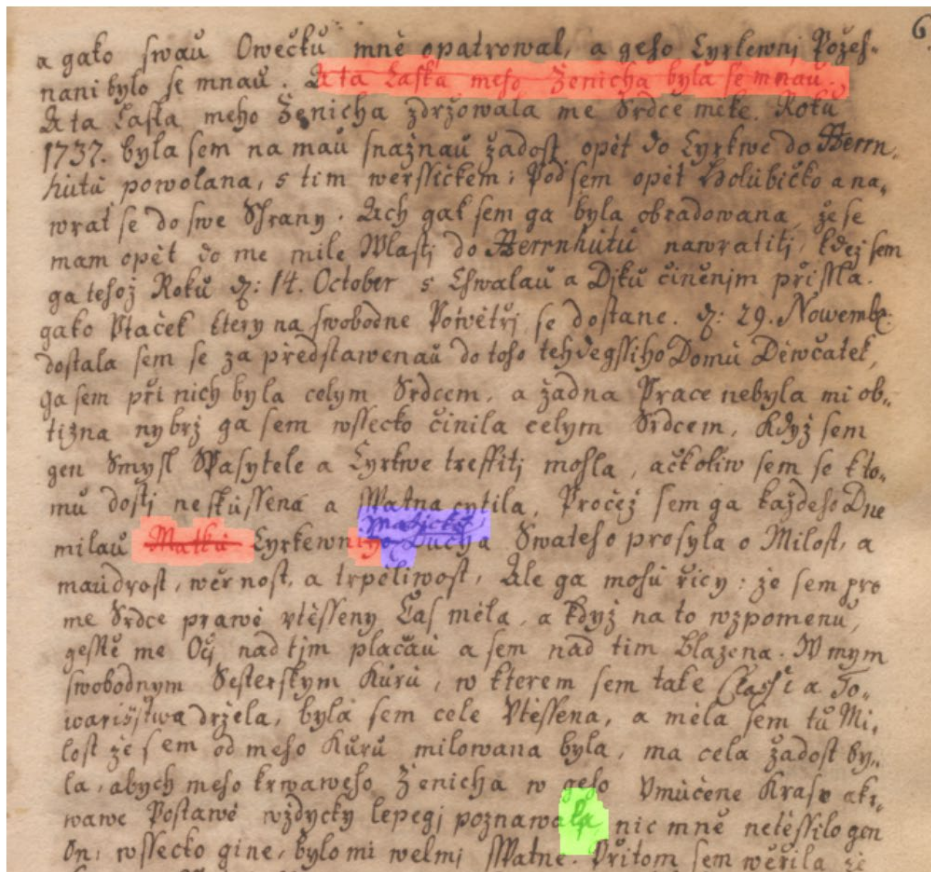 6
a gako swau Owečku mně opatrowal, a geho Cyrkewnj Požeh-
nani bylo se mnau. A ta Laska meho Ženicha byla se mnau.
A ta Laska meho Ženicha zdržowala me Srdce měke. Roku
1737. byla sem na mau snažnau žadost opět do Cyrkwe do Herrn-
hutu powolana, s tim werssičkem: Pod sem opět Holubičko a na-
wrať se do swe Shrany. Ach gak sem ga byla obradowana, že se
mam opět do me mile Wlasti do Herrnhutu nawratiti, kdež sem
ga tehož Roku d: 14. October s Chwalau a Djku činěnjm přissla.
gako Ptaček ktery na swobodne Powětřj se dostane. d: 29. Nowembr.
dostala sem se za představenau do toho tehdegssiho Domu Děwčatek,
ga sem při nich byla celym Srdcem, a žadna Prace nebyla mi ob-
tižna nybrž ga sem wssecko činila celym Srdcem, Když sem
gen Smysl Spasytele a Cyrkwe treffiti mohla, ačkoliw sem se kto-
mu dosti neskussena a Sspatna cytila, Pročež sem ga každeho Dne
Matičku
milau Matku Cyrkewnj Ducha Swateho prosyla o Milost, a
maudrost, wěrnost, a trpěliwost, Ale ga mohu řicy: že sem pro
me Srdce prawě vtěsseny Čas měla, a když na to wzpomenu,
gesstě me Oči nad tjm plačau a sem nad tim blažena. W mym
swobodnym Sesterskym Kuru, w kterem sem take Classi a To-
warišstwa držela, byla sem cele Vtěssena, a měla sem tu Mi-
lost že sem od meho Kuru milowana byla, ma cela žadost by-
la, abych meho krwaweho Ženicha w geho Vmučene Krase a kr-
wawe Postawě wždycky lepegj poznawala nic mně netěssilo gen
On: wssecko gine, bylo mi welmi Sspatne. Přitom sem wěřila že